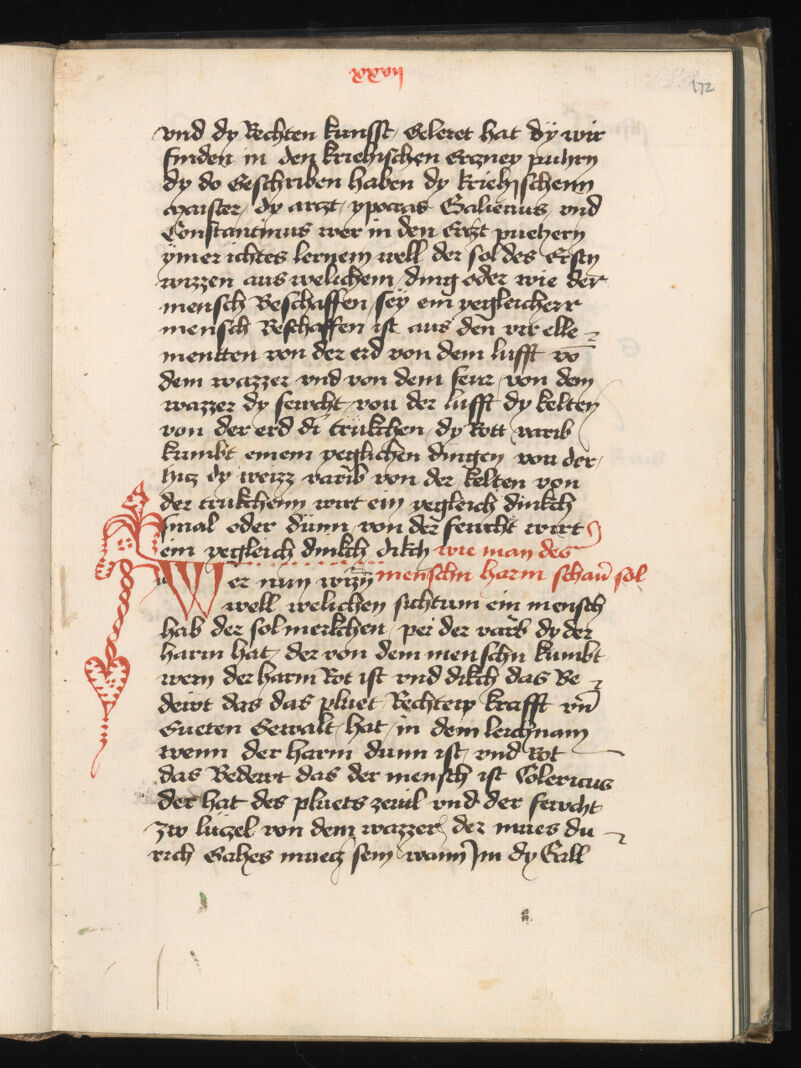 xxxvij
172
vnd dy Rechten kunsst geleret hat dÿ wir
finden in den kriehischen Erczney puhrn
dy do Geschriben haben dy kriehischenn
Maister dy arczt ypocras Galienus vnd
Constantinus wer in den Erczt puehern
ÿmer ichtes lernem well der sol des Ersty
wizzen aus welichem ding oder wie der
mensch Beschaffen sey ein yegleicherr
mensch Beschaffen ist aus den vir elle
mentten von der erd von dem lufft vō
dem wazzer vnd von dem fewr von dem
wazzer dy fewcht von der lufft dy kelten
von der erd di trükchen dy Rott varib
kumbt einem yeglichen dingen von der
hicz dy weizz varib von der kelten von
der trukchenn wirt ein yegleich dinkch
smal oder dünn von der fewcht wirt
ein yegleich dinkch dikch wie man des
menschn harm schaun sol
Wer nun wizzn
well welichen sichtum ein mensch
hab der sol merkchen pei der varib dy der
harm hat der von dem menschn kumbt
wem der harm Rot ist vnd dikch das Be
dewt das das pluet Rechtew krafft vn̄
Gueten Gewalt hat in dem leichnam
wenn der harm dunn ist vnd Rot
das Bedewt das der mensch ist Colericus
der hat des pluets zevil vnd der fewcht
zw lüczel von dem wazzer der mues du
rich Gahes muetz sein wann Im dy Gall